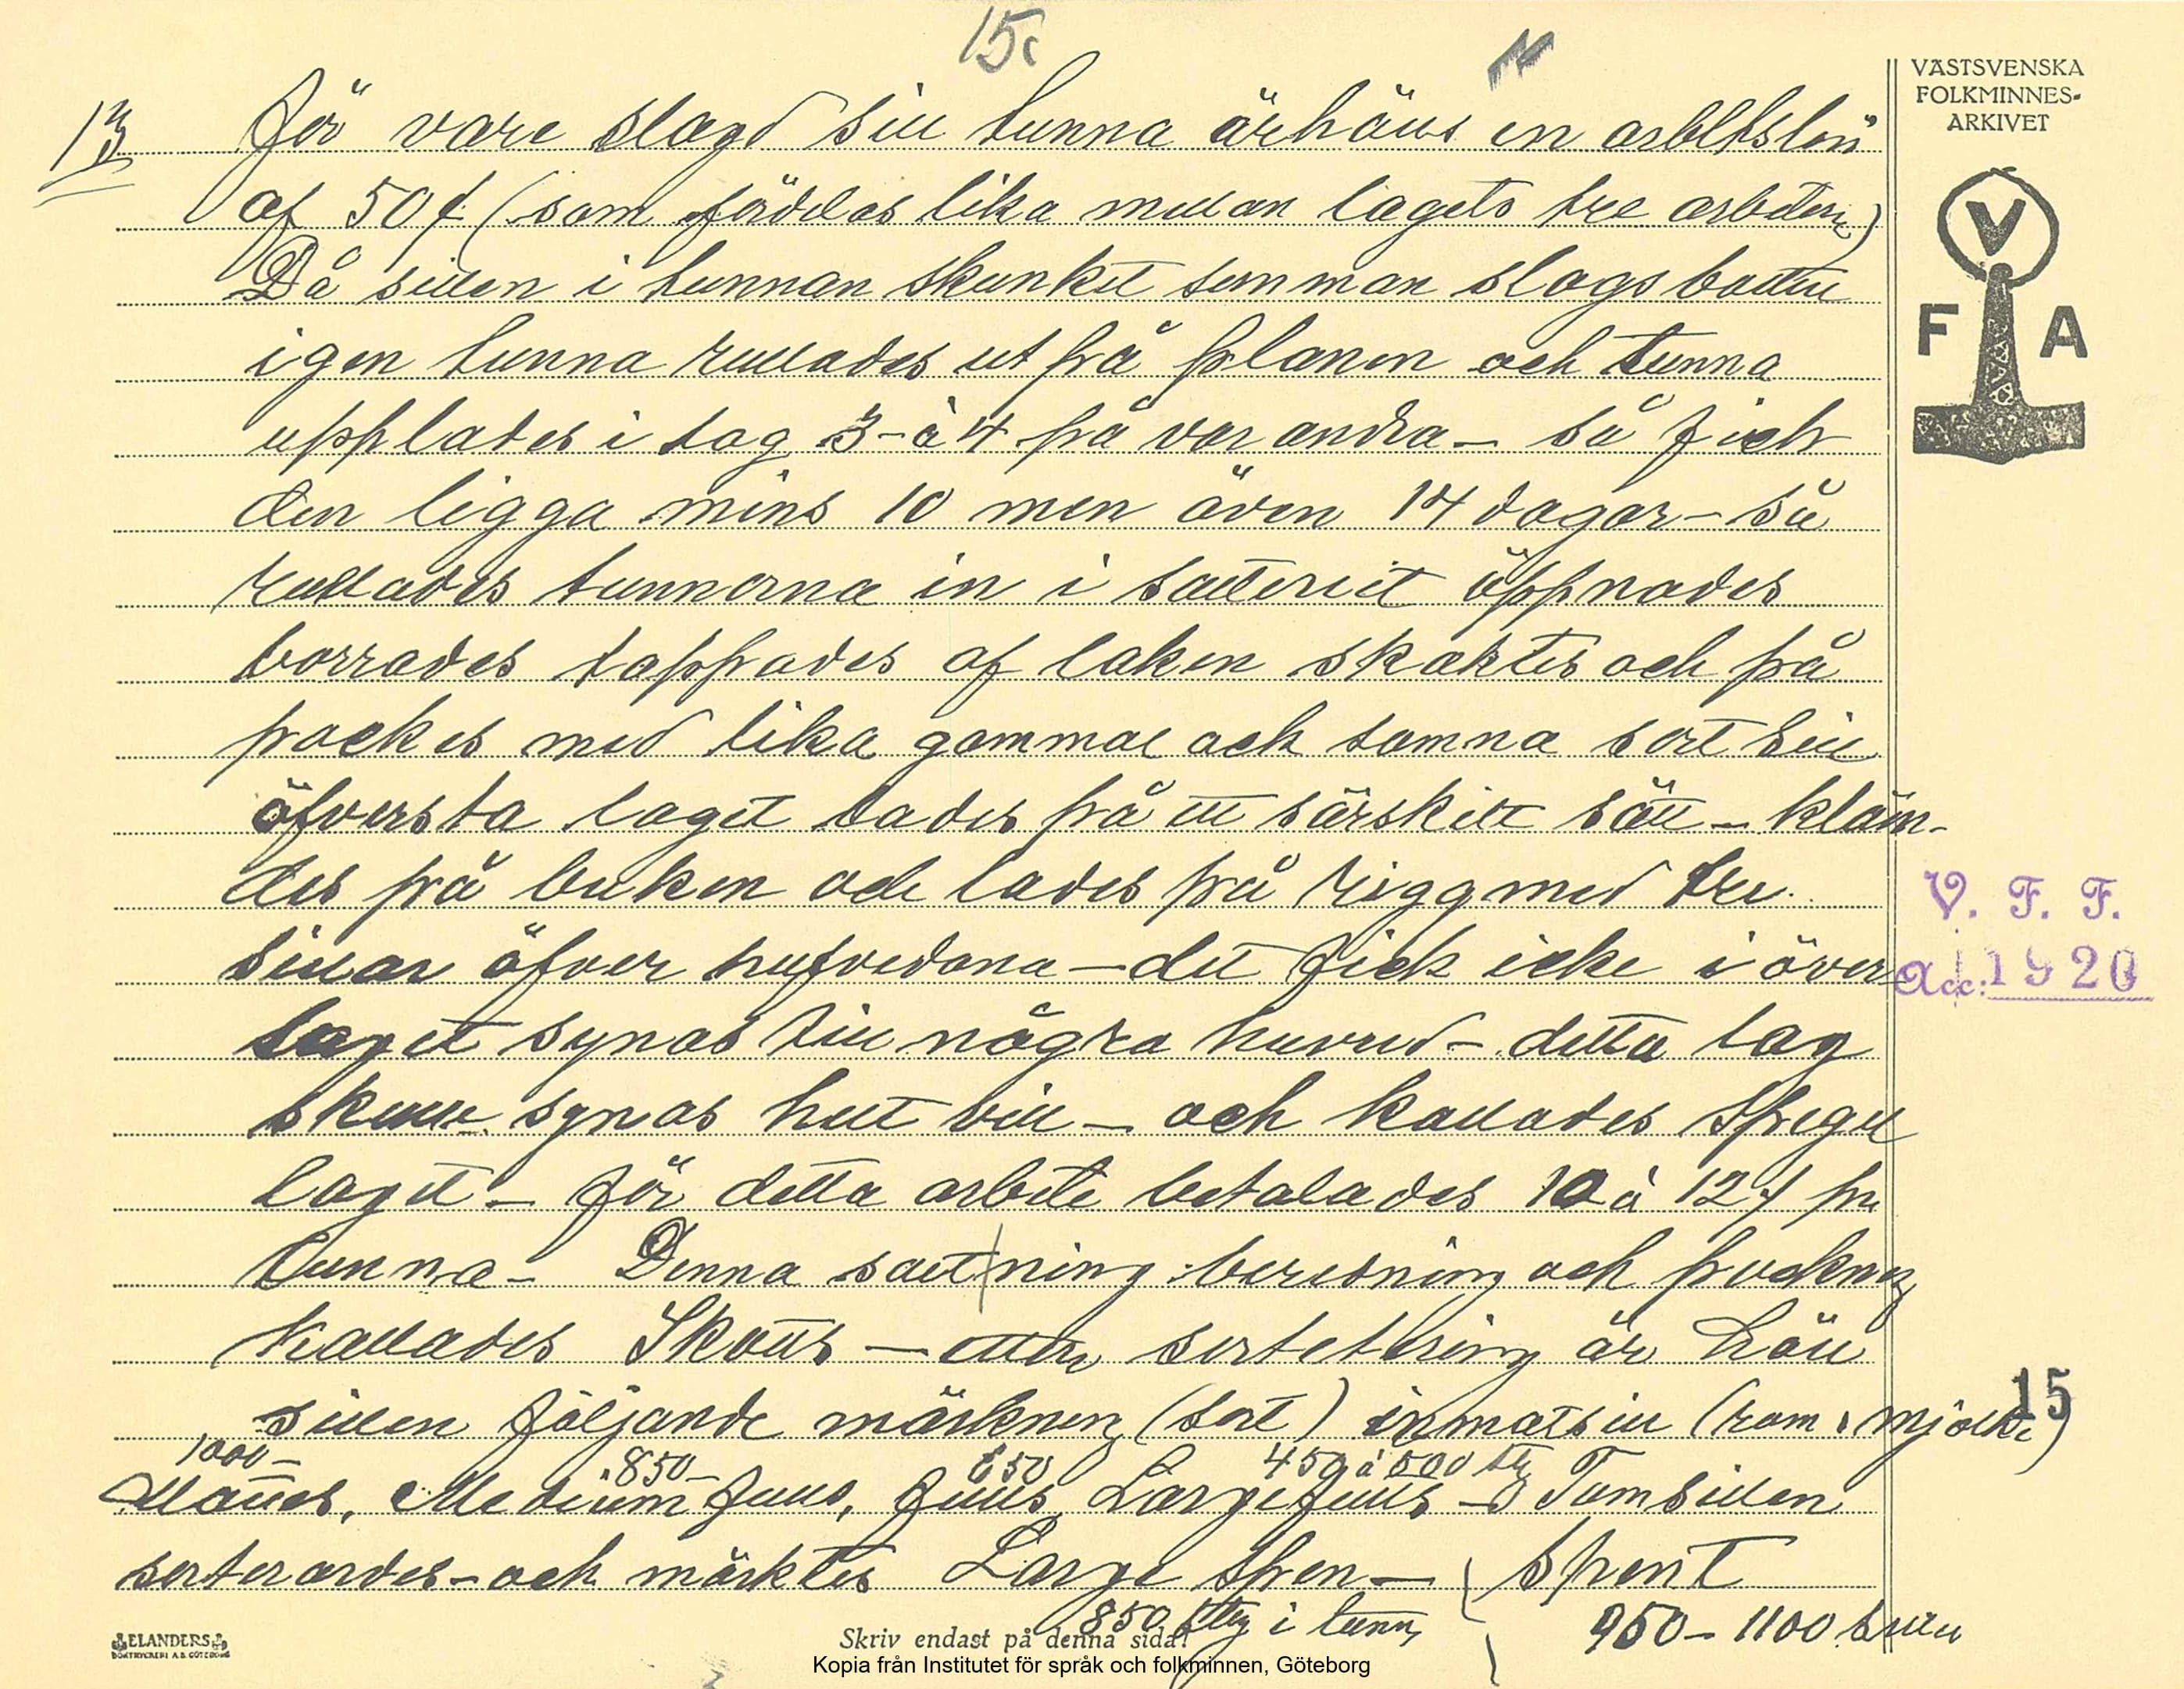 15.
VÄSTSVENSKA
FOLKMINNES-
ARKIVET
V
F A
13 För vare slagd sill tunna ärhäus en arbetslön
af 50 f (som fördelas lika mellan lagets tre arbetere)
Då sillen i tunnan skunkit samman slogs botten
igen tunna rullades ut på planen och tunna
upplades i lag 3-à 4 på varandra - så fick
den ligga mins 10 men även 14 dagar - så
rullades tunnorna in i salteriet öppnades
borrades tappades af laken skaktes och på
packes med lika gammal och samma sort sill
öfversta laget lades på ett särskilt sätt - kläm-
des på buken och lades på rigg med tre
sillar öfver hufvedona - det fick icke i över
laget synas till några huvud - detta lag
skulle synas helt sill - och kallades Spegel
laget - för detta arbete betalades 10 à 12 f pr
tunna - Denna saltning beredning och packning
kallades Skotts - etter sortetering är håll
sillen följande märkning (sort) (rom. mjölke)
1000- 850- 650 450 à 500 stq
Maties, Medium Fulls, Fulls, LargeFulls - Tomsillen
sorterardes - och märktes Large Spen - Spent
850 stq i tunn, 950 - 1100 sillar
V. F. F.
Acc: 1920
15
ELANDERS
BOKTRYCKERI A.B. GÖTEBORG
Skriv endast på denna sida!
Kopia från Institutet för språk och folkminnen, Göteborg